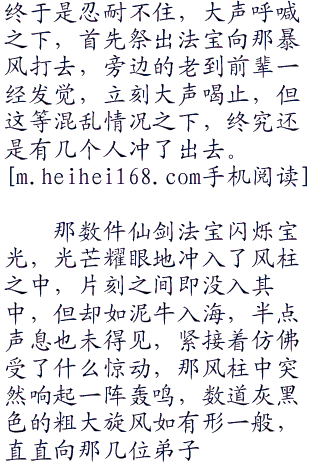 终于是忍耐不住，大声呼喊
之下，首先祭出法宝向那暴
风打去，旁边的老到前辈一
经发觉，立刻大声喝止，但
这等混乱情况之下，终究还
是有几个人冲了出去。
[m.heihei168.com手机阅读]
那数件仙剑法宝闪烁宝
光，光芒耀眼地冲入了风柱
之中，片刻之间即没入其
中，但却如泥牛入海，半点
声息也未得见，紧接着仿佛
受了什么惊动，那风柱中突
然响起一阵轰鸣，数道灰黑
色的粗大旋风如有形一般，
直直向那几位弟子